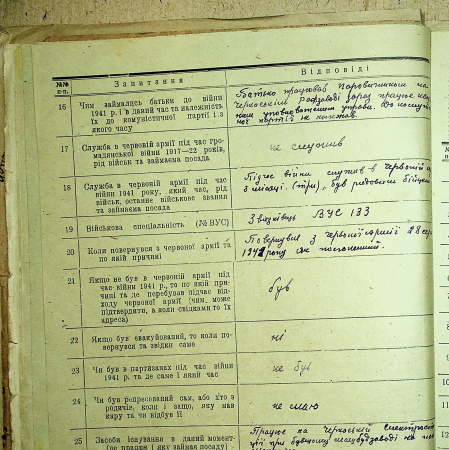 №№ п-п.
Запитання
Відповіді
16
Чим займались батьки до війни
1941 р. і в даний час та належність
їх до комуністичної партії і з
якого часу
Батько працював
зараз працює
партії не належав.
17
Служба в червоній армії під час гро-
мадянської війни 1917—22 років,
рід військ та займаєма посада
не служив
18
Служба в червоній армії під час
війни 1941 року, який час, рід
військ, останнє військове звання
та займаєма посада
Підчас війни служив в Червоній
3 місяці. (три), був рядовим бійцем
19
Військова спеціальність (№ ВУС)
ВУС 133
20
Коли повернувся з червоної армії та
по якій причині
Повернувся з Червоної армії 28
1941 року як полонений.
21
Якщо не був в червоній армії під
час війни 1941 р., то по якій при-
чині та де перебував підчас від-
ходу червоної армії (чим, може
підтвердити, а коли свідками то їх
адреса)
був
22
Якщо був евакуйований, то коли по-
вернувся та звідки саме
ні
23
Чи був в партизанах під час війни
1941 р. та де саме і який час
не був
24
Чи був репресований сам, або хто з
родичів, коли і защо, яку мав
кару та чи відбув її
не маю
25
Засоби існування в даний момент
(де працює і яку займає посаду)
Працює на